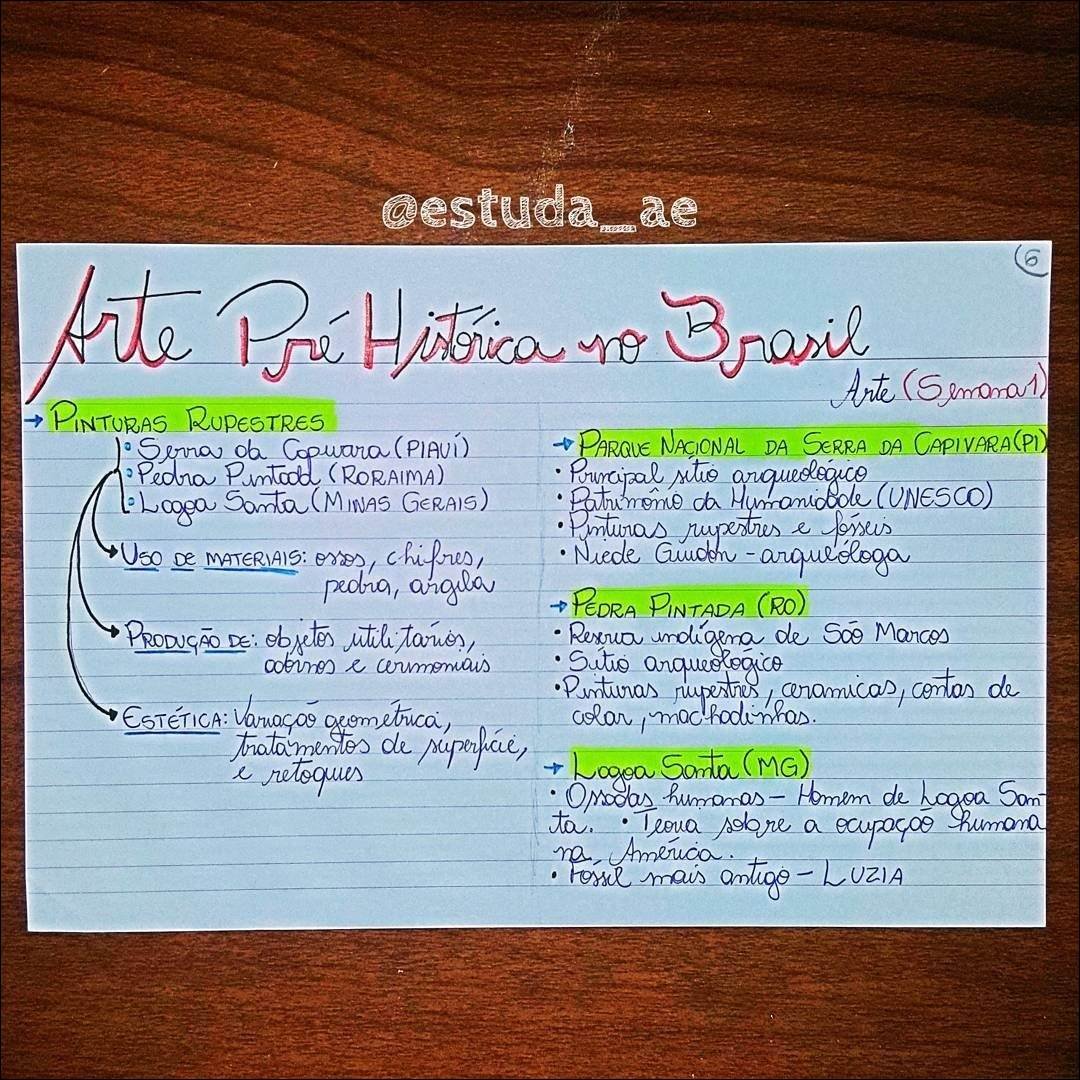 @estuda_ae
6
Arte Pré Histórica no Brasil
Arte (Semana 1)
→ PINTURAS RUPESTRES
• Serra da Capivara (PIAUÍ)
• Pedra Pintada (RORAIMA)
• Lagoa Santa (MINAS GERAIS)
USO DE MATERIAIS: ossos, chifres,
pedra, argila
PRODUÇÃO DE: objetos utilitários,
adornos e cerimoniais
ESTÉTICA: Variação geométrica,
tratamentos de superfície,
e retoques
→ PARQUE NACIONAL DA SERRA DA CAPIVARA (PI)
• Principal sítio arqueológico
• Patrimônio da Humanidade (UNESCO)
• Pinturas rupestres e fósseis
• Niede Guidon - arqueóloga
→ PEDRA PINTADA (RO)
• Reserva indígena de São Marcos
• Sítio arqueológico
• Pinturas rupestres, ceramicas, contas de
colar, machadinhas.
→ Lagoa Santa (MG)
• Ossadas humanas - Homem de Lagoa San-
ta. • Teoria sobre a ocupação humana
na América.
• Fóssil mais antigo - LUZIA